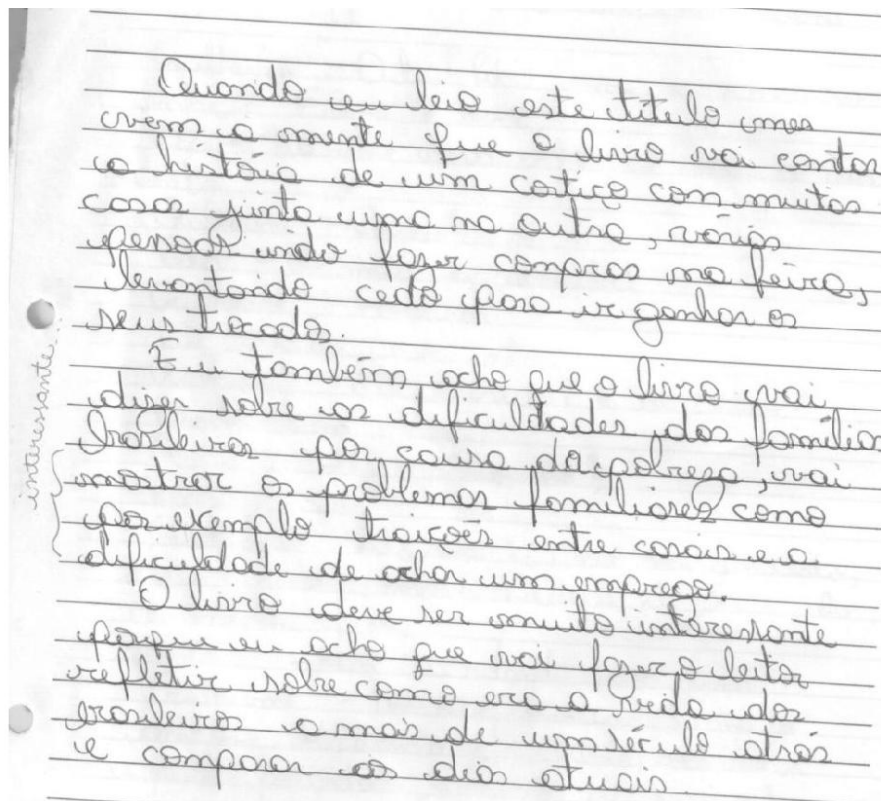 Quando eu leio este titulo mea
vem a mente que o livro vai contar
a história de um cortiço com muitas
casas junta uma na outra, várias
pessoas indo fazer compras na feira,
levantando cedo para ir ganhar os
seus trocados.
Eu também acho que o livro vai
dizer sobre as dificuldades das famílias
brasileiras por causa da pobreza, vai
mostrar os problemas familiares como
por exemplo traições entre casais e a
dificuldade de achar um emprego.
O livro deve ser muito interessante
porque eu acho que vai fazer o leitor
refletir sobre como era a vida dos
brasileiros a mas de um século atrás
e comparar aos dias atuais.
interessante...